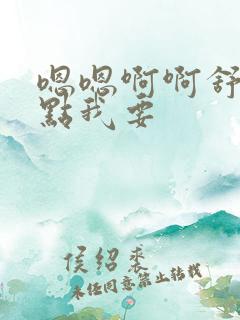 嗯嗯啊啊舒
點我要
侯紹裘
未经同意禁止转载